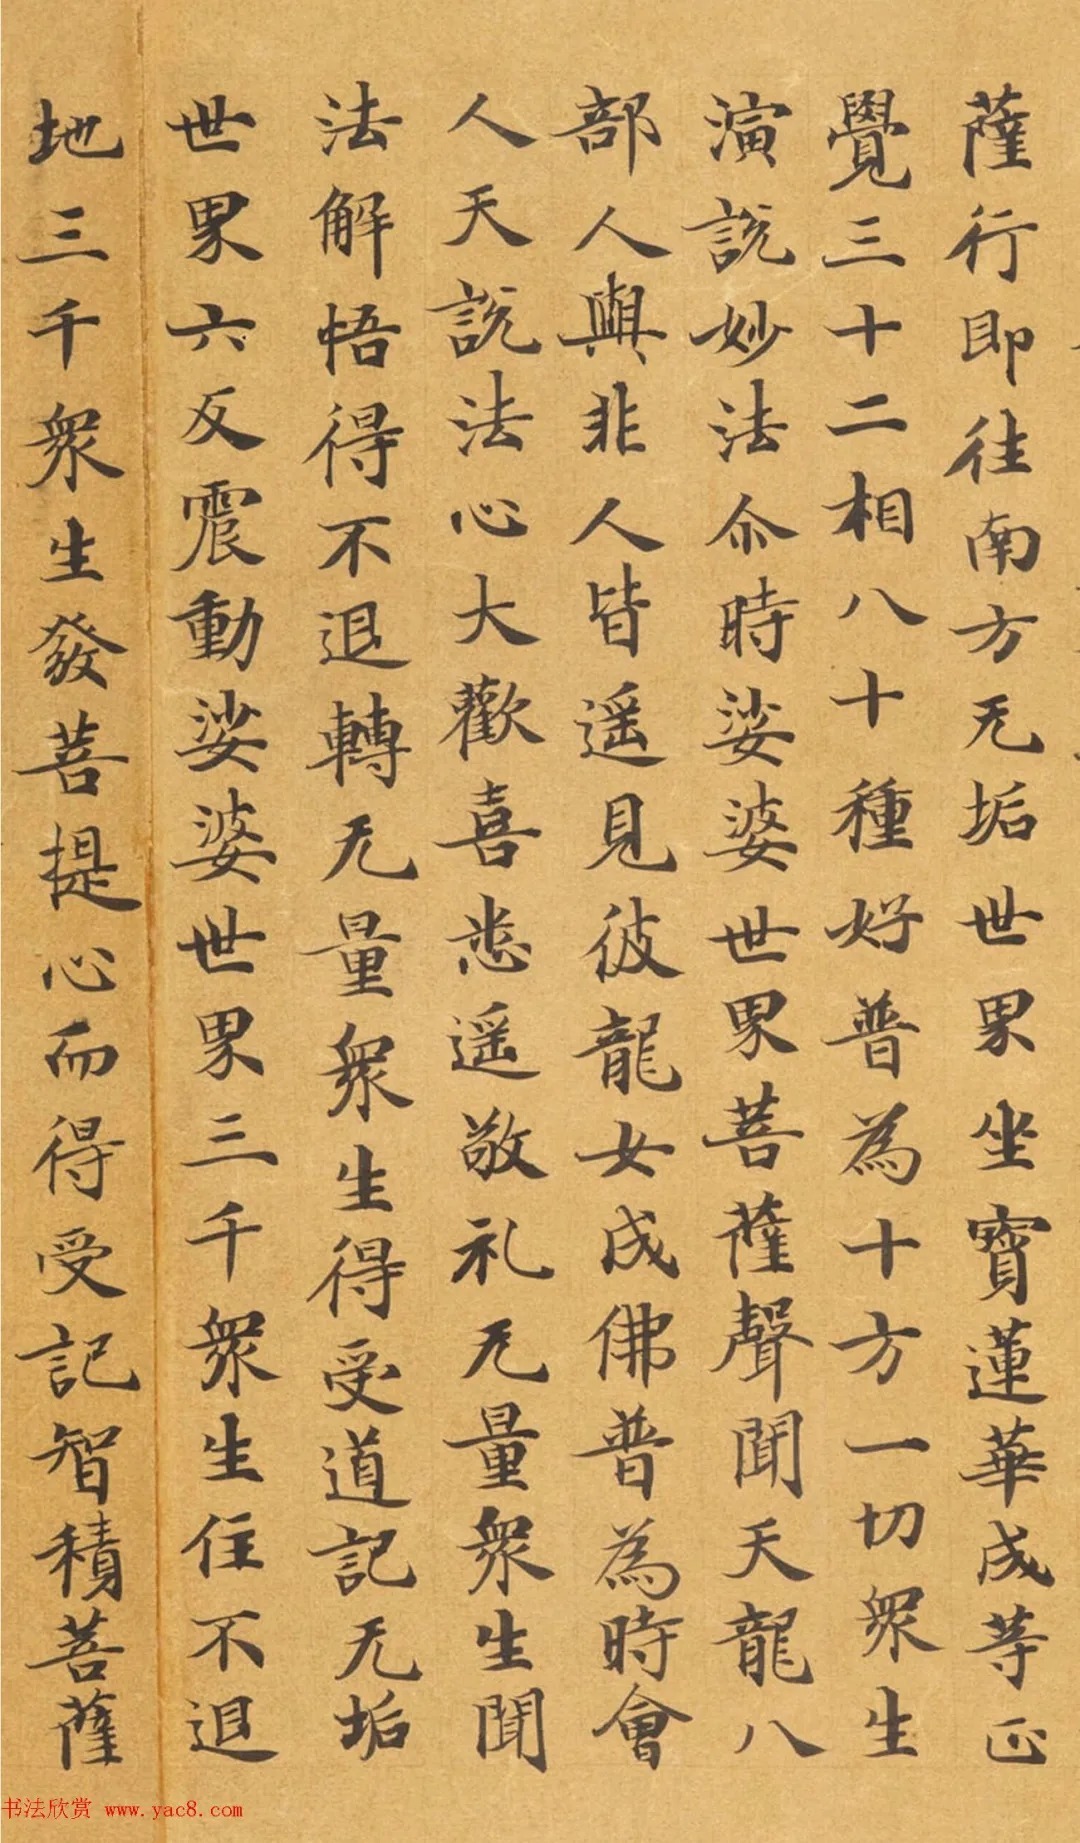 薩行即往南方无垢世界坐寳蓮華成等正
覺三十二相八十種好普為十方一切衆生
演說妙法尒時娑婆世界菩薩聲聞天龍八
部人與非人皆遥見彼龍女成佛普為時會
人天說法心大歡喜悉遥敬礼无量衆生聞
法解悟得不退轉无量衆生得受道記无垢
世界六反震動娑婆世界三千衆生住不退
地三千衆生發菩提心而得受記智積菩薩
书法欣赏 www.yac8.com